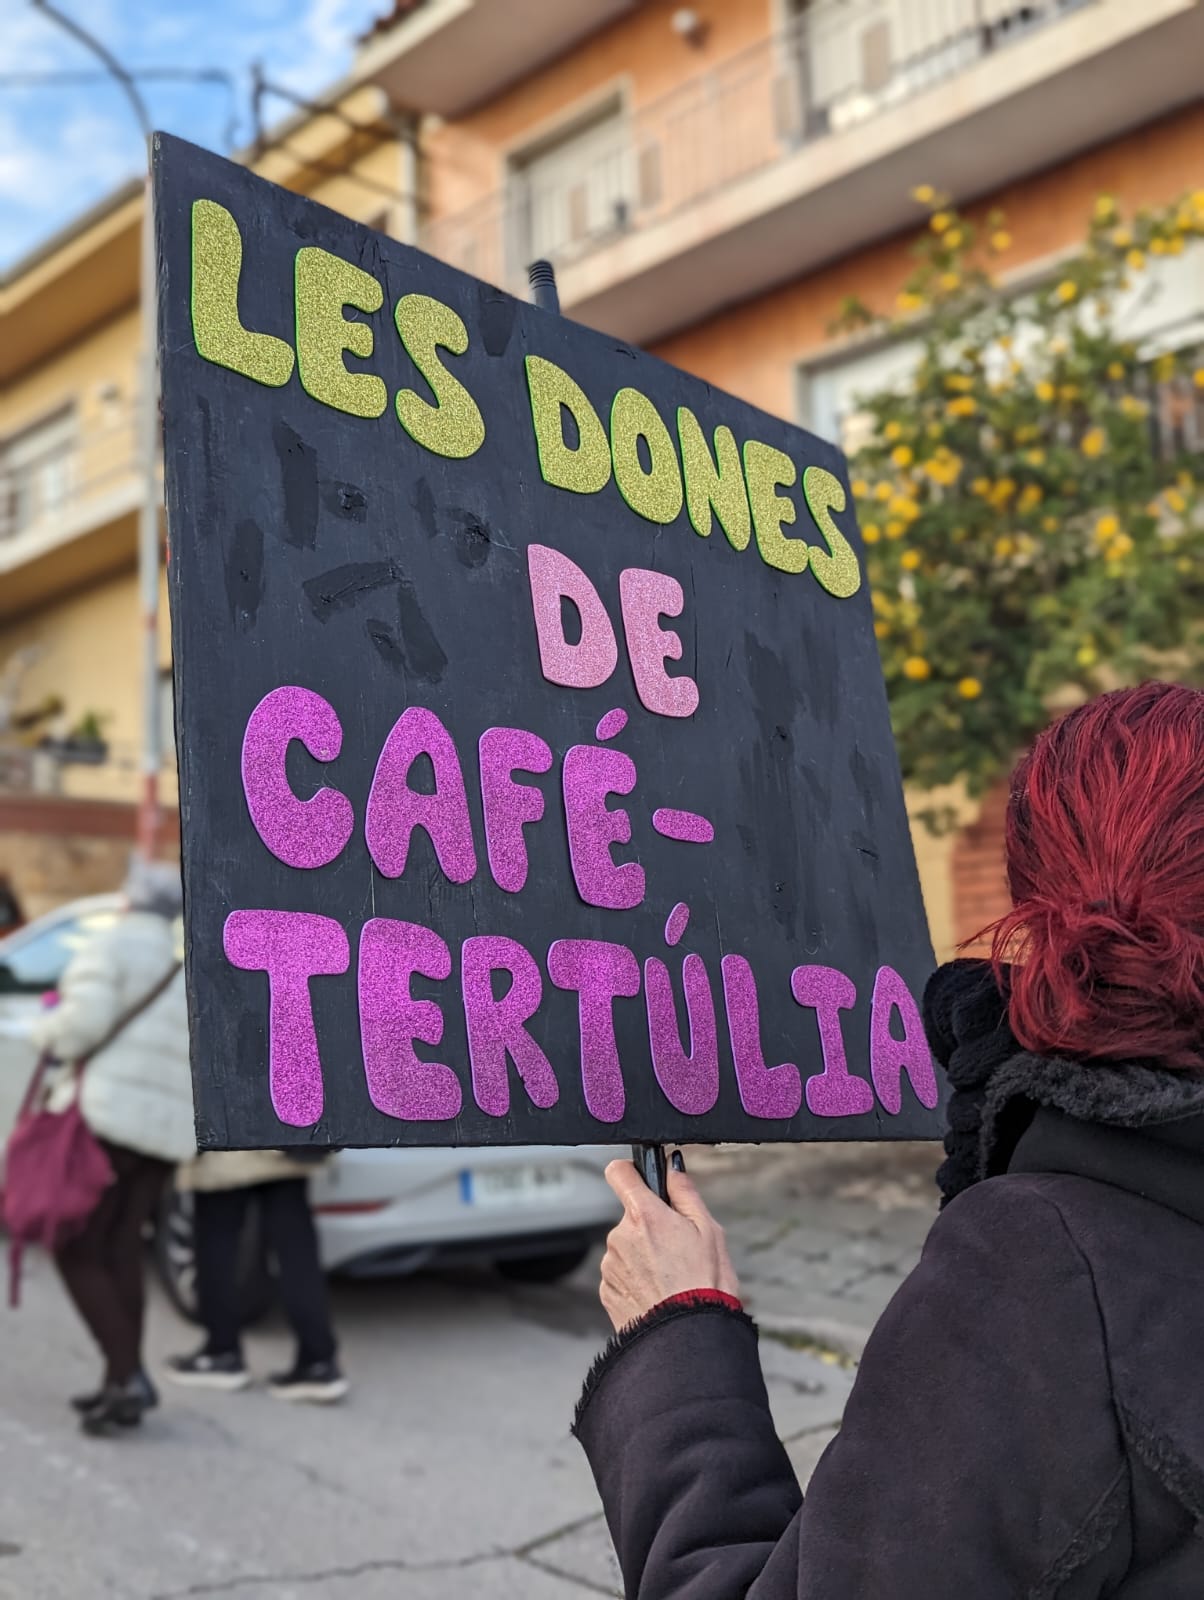 LES DONES
DE
CAFÉ-
TERTÚLIA